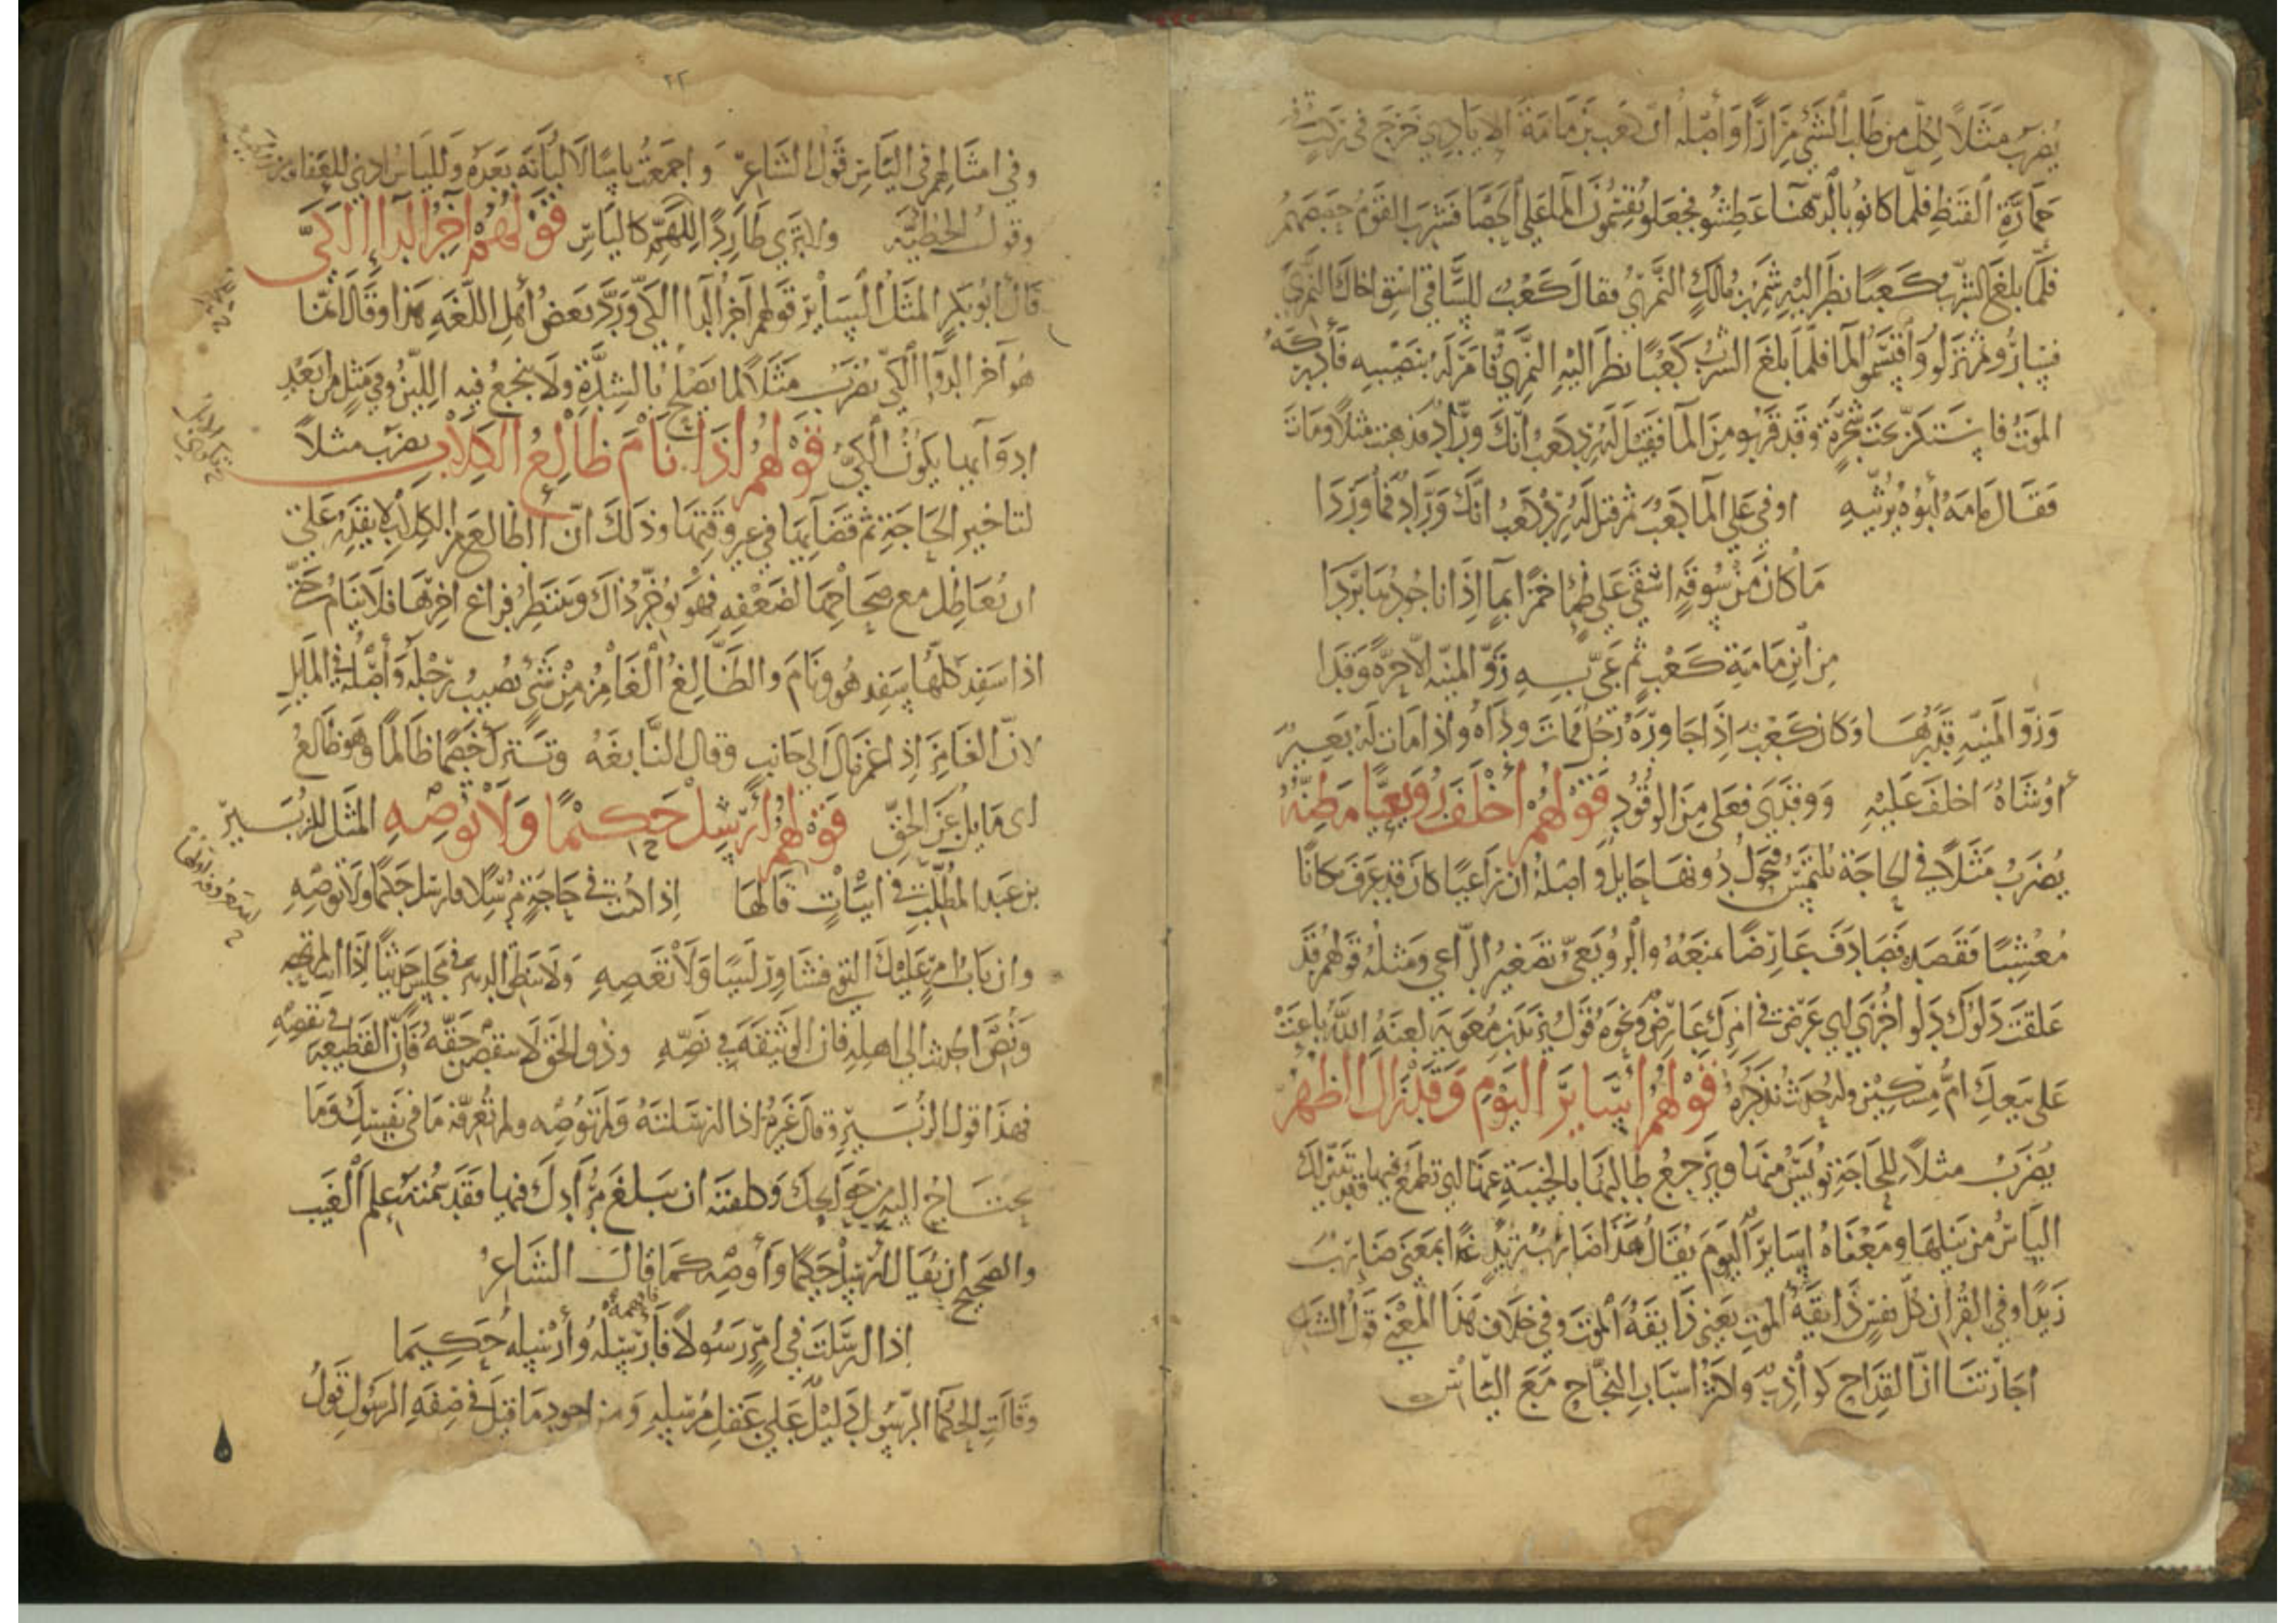 يُضرَبُ مَثَلاً لكل من طلب الشي مِرَارًا وَأَصْله ان كعب بن مَامَة الايادِي خرج في ركبٍ
حمارَّةِ القَيْظِ فلمّا كانو بالدهنا عَطِشُو فجعلو يُقسِّمُونَ المآ على الحَصَا فشرب القوم حصصهم
فلمّا بلغ الشِّربُ كعبًا نظر اليه شمر بن مالكٍ النَّمَريّ فقال كَعْبٌ للسَّاقي اسْقِ اخاك النَّمَرِيَّ
فسارُو ثم نزلو وَأقتسمُو المآ فلمّا بلغَ الشربُ كَعْبًا نظر اليه النَّمَرِيُّ فامر له بنصيبه فأدركهُ
الموتُ فاستكنّ تحت شجرةٍ وقد قربو من المآ فقيل له رد كعب انك ورّاد فذهبت مثلاً ومات
فقال مامَه ابُوهُ يرثيه اوفي على المآ كعبٌ ثم قيل له رِدْ كعبُ انك ورَّادٌ فما وردَا
مَا كان من سُوقَةٍ اسْقَى على ظمإٍ خمرًا بمآءٍ اذا ناجُودُها بَرَدَا
من ابن مَامَة كعبٍ ثم عَيَّ به زوّ المنيّه الا حِرَّةً وَقَدَا
وَزوّ المنيّه قدَرُهَا وكان كعْبٌ اذا جاوره رجُل فمات ودَاهُ واذا مات له بعيرٌ
أو شاةٌ اخلفَ عليْهِ ووقدَى فعَلى من الوقُودِ قولهم أَخْلَفَ رُوَيعِيًّا مَظِنَّهُ
يُضرَبُ مَثَلاً في الحاجَة تلتمسُ فيحُولُ دُونها حايلٌ وَاصلهُ ان راعيًا كان قد عرَف مكانًا
مُعْشِبًا فقصده فصَادَفَ عارضًا منعَهُ والرُّوَيعيّ تصغيرُ الرّاعي ومثلهُ قولهم قد
عَلقَتْ دَلوَك دَلوٌ اخرَى اي عَرَضَ في امرك عارضٌ ونحوه قول يزيد بن معويه لعنهُ الله باعَتْ
على بَيعِك امُّ مِسْكِينٍ وله حديثٌ نذكرهُ قولهم أَسَايرَ اليَوْمِ وَقد زال الظهْرُ
يُضرَبُ مثلاً للحاجَةِ يُويَسُ منها ويَرجعُ طالبها بالخيبَةِ عنها اي تطمعُ فيها وقد تبيَّن لك
اليَاسُ من نيلها ومعْناهُ اسَايرَ اليوم يقالُ هذا ضاربُ زيدٍ غدًا بمعنى ضاربٌ
زَيدًا وفي القرآن كلّ نفسٍ ذايقةُ الموتِ يعني ذايقةٌ الموتَ وفي خلاف هذا المعْنى قولُ الشاعر
اجارتنَا انّ القِداح كواذِبٌ واكثرُ اسبابِ النجاحِ مَعَ الياسِ
٢٢
وفي امثالهم في الياس قول الشاعرِ واجمعتُ ياسًا لا لُبانَةَ بعدَهُ ولَلياسُ ادنى للعفاف من
وقولُ الحُطيَّه ولا ترى طارِدًا للهمِّ كالياسِ قولهم آخِرُ الدآءِ الكَيّ
قال ابُو بكرٍ المثَلُ السَّايرُ قولهم آخر الدآ الكيّ وَرَدَّ بعضُ أهل اللغَه هذا وقال انّما
هُو آخر الدوآ الكيّ يُضرَبُ مثَلاً لما يصلح بالشِدَّةِ ولا ينجعُ فيه اللينُ وفي مثلٍ من ابعَدِ
ادوَآيها يكونُ الكيّ قولهم إذا نَامَ ظَالِعُ الكِلابِ يضرَب مثلاً
لتاخير الحاجَةِ ثم قضآيها في غير وقتها وذلك انّ الظالعَ من الكلاب لا يقدِرُ على
ان يُعَاظل مع صحاحها لضعْفه فهو يؤخّر ذاك وينتظر فراغ اخرها فلا ينامُ حتى
اذا سفد كلّها سفد هُو ونام والظالِعُ الغامز من شيءٍ يُصيبُ رجلهُ وأصلهُ الميلُ
لانّ الغامِزَ اذا غمز مال الى جانبٍ وقال النَّابغَه وتَترك خصمًا ظالمًا وهو ظالعُ
اى مايلٌ عن الحقّ قولهم أَرْسِلْ حَكِيْمًا وَلا تُوصِهِ المثَل للزُّبَيرِ
بن عبد المطّلب في ابياتٍ قالها اذا كُنتَ في حاجةٍ مُرْسِلاً فارسل حكيمًا ولا تُوصِهِ
وان بابُ امرٍ عليك التوى فشاوِرْ لَبيبًا ولا تعْصِهِ
ونُصّ الحديث الى اهله فان الوثيقة في نصّهِ وذُو الحقّ لا تنقصنْ حقّهُ فإنّ القطيعة في نقصِهِ
فهذا قول الزُّبَيرِ وقال غَيرُهُ اذا ارسَلتَهُ ولم تُوصِه ولم تُعرِّفه ما في نفسِك وَمَا
يحتاجُ اليه من حَوَايجك وكلفته ان يبلغ مُرَادك فيها فقد سُمْتهُ عِلم الغَيب
والصحيح ان يقال ارسِلْ حَكيمًا وَأَوصِه كما قال الشاعرُ
اذا ارسَلتَ في امرٍ رسُولاً فَأَفهمهُ وأرْسِلهُ حَكِيمَا
وقالتِ الحكما الرسُول دليلٌ على عقلِ مُرْسِلِهِ ومن اجود ما قيل في صِفَهِ الرسُولِ قولُ